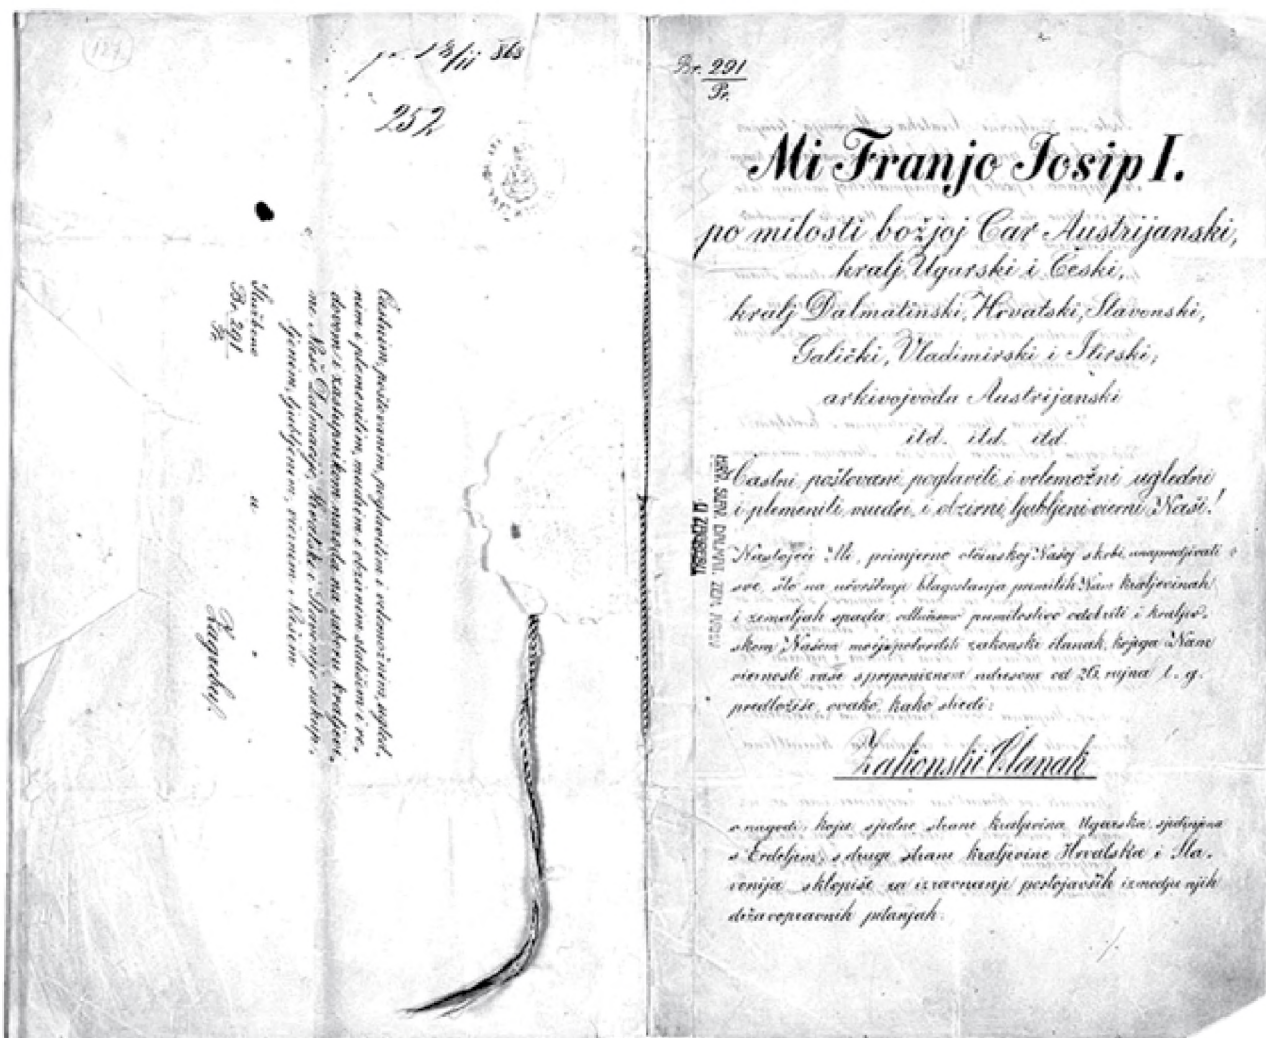 127.
pr. 13/11 868
252
Častnim, poštovanim, poglavitim i velemožnim, ugled-
nim i plemenitim, mudrim i obzirnim stališem i re-
dovom i zastupnikom naroda na saboru kraljevi-
ne Naše Dalmacije, Hrvatske i Slavonije sakup-
ljenim, ljubljenim, viernim Našim.
Službeno
Br. 291
Pr.
u
Zagrebu
Br. 291
Pr.
Mi Franjo Josip I.
po milosti božjoj Car Austrijanski,
kralj Ugarski i Česki,
kralj Dalmatinski, Hrvatski, Slavonski,
Galički, Vladimirski i Ilirski;
arkivojvoda Austrijanski
itd. itd. itd.
Častni, poštovani, poglaviti i velemožni, ugledni
i plemeniti, mudri i obzirni, ljubljeni vierni Naši!
Nastojeći Mi, primjerno otčinskoj Našoj skrbi, unapredjivati
sve, što na učvrštenje blagostanja premilih Nam kraljevinah
i zemaljah spada, odlučismo premilostivo odobriti i kraljev-
skom Našom moćju potvrditi zakonski članak, kojega Nam
viernosti vaše s preponiznom adresom od 26. rujna t. g.
predložiše, ovako, kako sliedi:
Zakonski Članak
o nagodi, koju s jedne strane kraljevina Ugarska, sjedinjena
s Erdeljem, s druge strane kraljevine Hrvatska i Sla-
vonija sklopiše za izravnanje postojavših izmedju njih
državopravnih pitanjah.